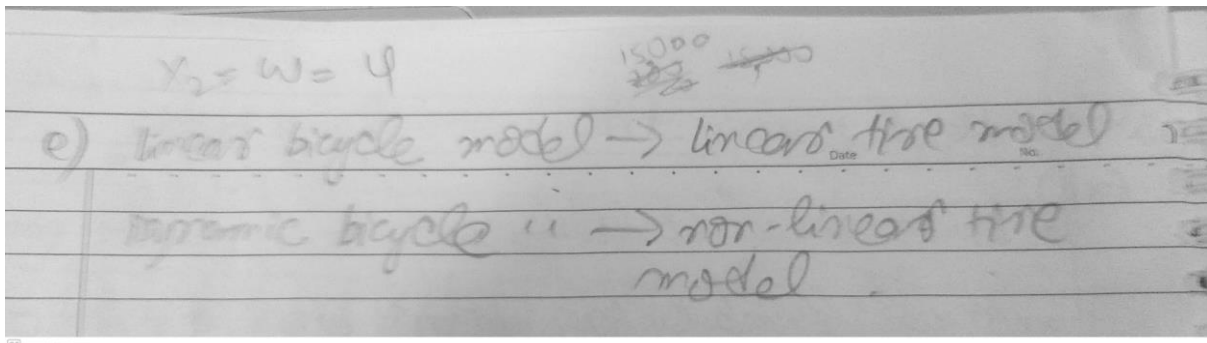 X₂ = W = φ 15000
e) linear bicycle model → linear tire model
Date No.
Dynamic bicycle " → non-linear tire
model